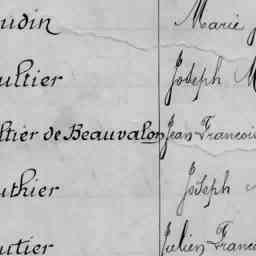 udin Marie
ultier Joseph M
ltier de Beauvalon Jean Francois
uthier Joseph
utier Julien Franco